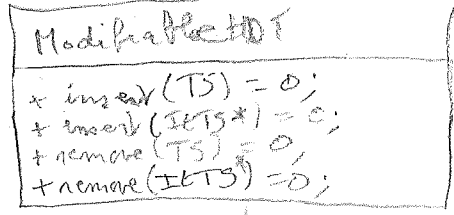 ModifiableHDT
+ insert(TS) = 0;
+ insert(ItTS*) = 0;
+ remove(TS) = 0,
+ remove(ItTS*) = 0;